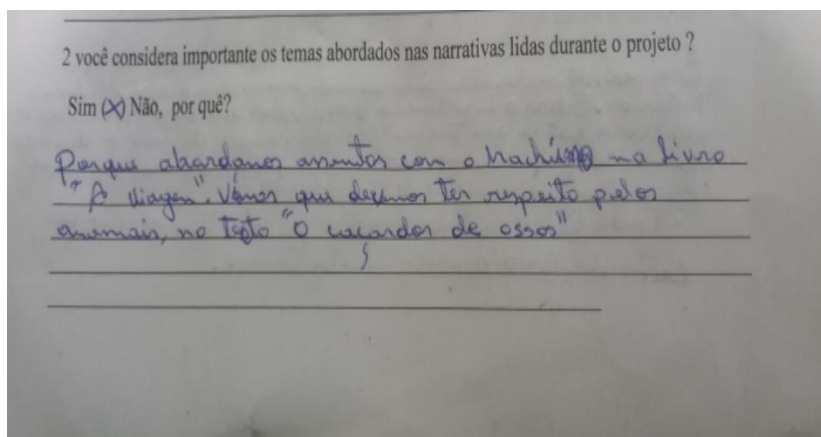 2 você considera importante os temas abordados nas narrativas lidas durante o projeto ?
Sim (X) Não, por quê?
Porque abordamos assuntos com o Rachismo na livro
"A Viagem". Vemos que devemos ter respeito pelos
animais, no texto "O caçandor de ossos"